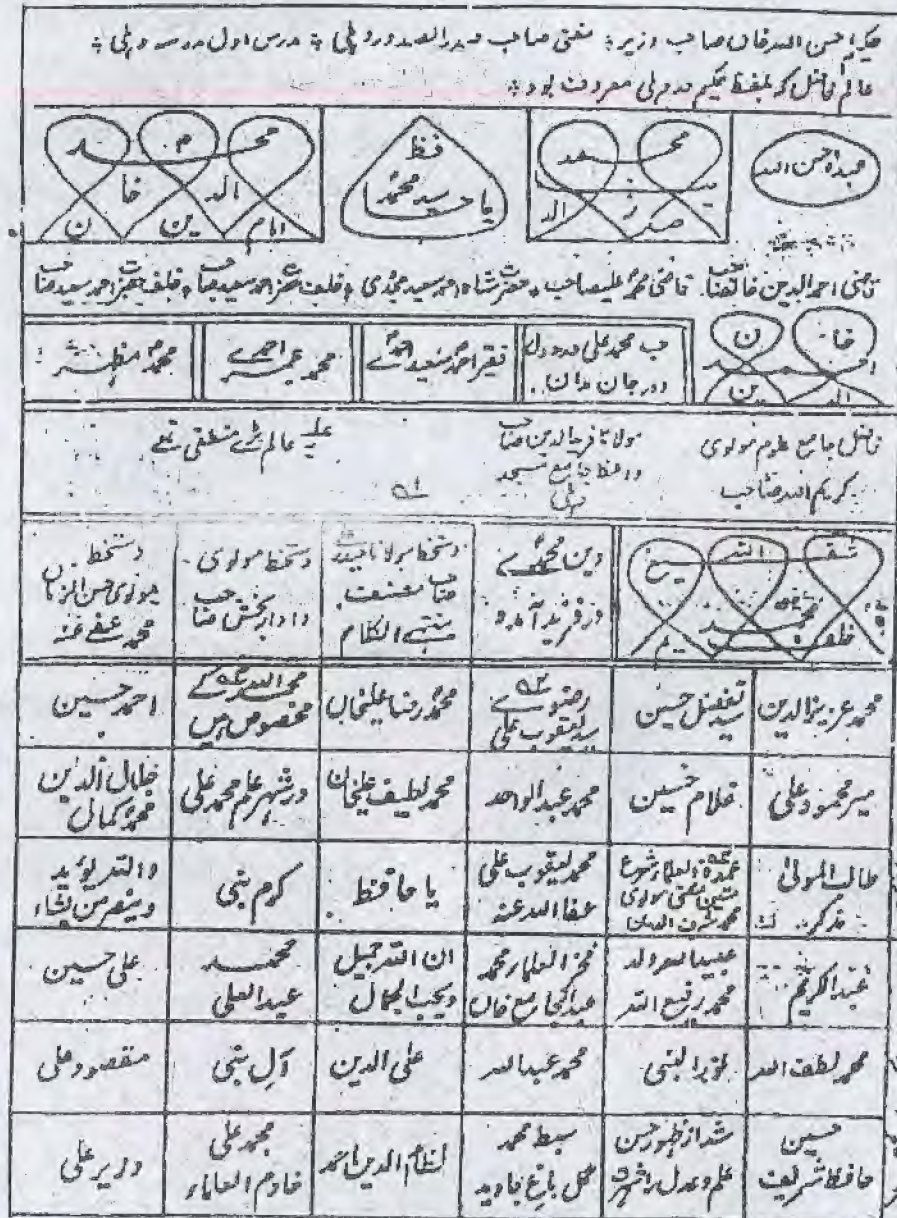 حکیم احسن اللہ خاں صاحب وزیر ۔ مفتی صاحب صدر الصدور دہلی ۔ مدرس اول مدرسہ دہلی ۔
عالم فاضل کہ بلفظ حکیم در دہلی معروف بود ۔
عبدہ احسن اللہ
محمد صدر الدین
یا حافظ سید محمد
محمد امام الدین خان
قاضی احمد الدین خانصاحب قاضی محمد علیصاحب حضرت شاہ احمد سعید مجددی خلف حضرت احمد سعید صاحب خلف حضرت احمد سعید صاحب
احمد الدین خان
حب محمد علی در دل و در جان
فقیر احمد سعید احمدی
محمد عمر احمدی
محمد مظہر
فاضل جامع علوم مولوی کریم اللہ صاحب
مولانا فرید الدین صاحب واعظ جامع مسجد دہلی
عالم بڑے منطقی تھے
شفیع
دین محمدی در فرید آمد
دستخط مولانا حیدر علی صاحب مصنف منتہی الکلام
دستخط مولوی دادار بخش صاحب
دستخط مولوی حسن الزمان محمد عفی عنہ
محمد عزیز الدین
سید تفضل حسین
رضوی سید یعقوب علی
محمد رضا علیخاں
محمد اللہ مخصوص
احمد حسین
میر محمود علی
غلام حسین
محمد عبد الواحد
محمد لطیف علیخان
در شہر علم محمد علی
جلال الدین محمد کمال
طالب المولیٰ مذکر
عمدة العلماء شرع متین مفتی مولوی محمد شرف الدین
محمد یعقوب علی عفا اللہ عنہ
یا حافظ
کرم نبی
واللہ یؤید بنصرہ من یشاء
عبد الکریم
عبید اللہ ولد محمد رفیع اللہ
فخر العلماء محمد عبد الجامع خاں
ان اللہ جمیل ویحب الجمال
محمد عبد العلی
علی حسین
محمد لطف اللہ
نور النبی
محمد عبد اللہ
علی الدین
آل نبی
مقصود علی
حسین حافظ شریف
شد از ظہور حسن علم و عدل را شہرت
سبط محمد گل باغ جاوید
نظام الدین احمد
محمد علی خادم العلماء
وزیر علی